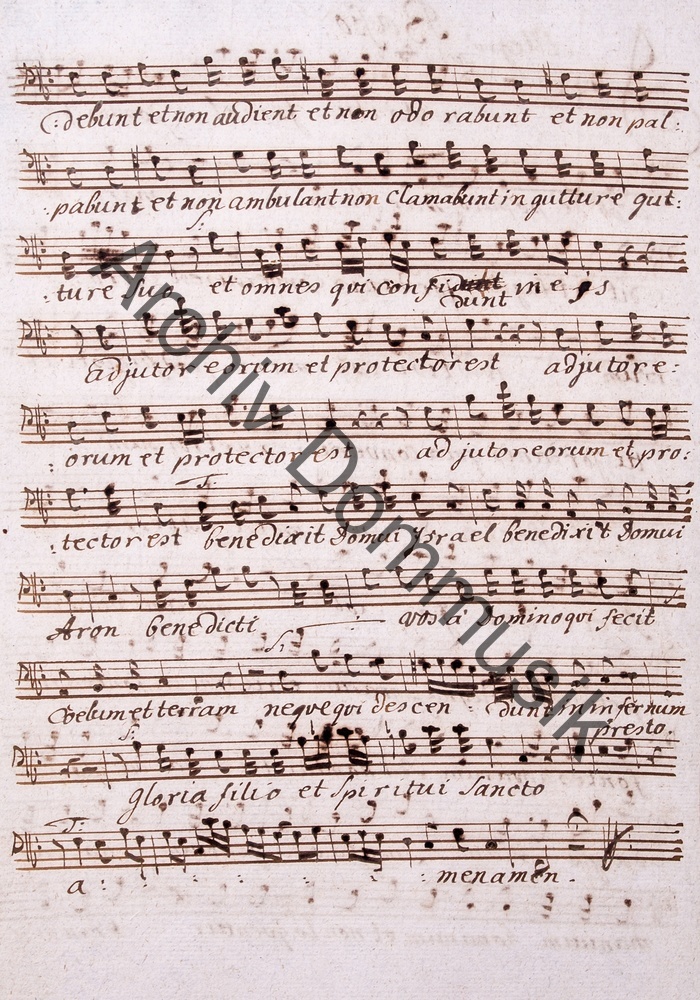 :debunt et non audient et non odo rabunt et non pal:
:pabunt et non ambulant non Clamabunt in gutture gut:
:ture suo et omnes qui confi dunt in e js
adjutor eorum et protector est adjutor e:
:orum et protector est adjutor eorum et pro:
:tector est benedixit Domui Israel benedixit Domui
Aron benedicti vos à Domino qui fecit
Coelum et terram neque qui descen : dunt in infernum
presto.
gloria filio et spiritui sancto
a : : : : menamen.
Archiv Dommusik